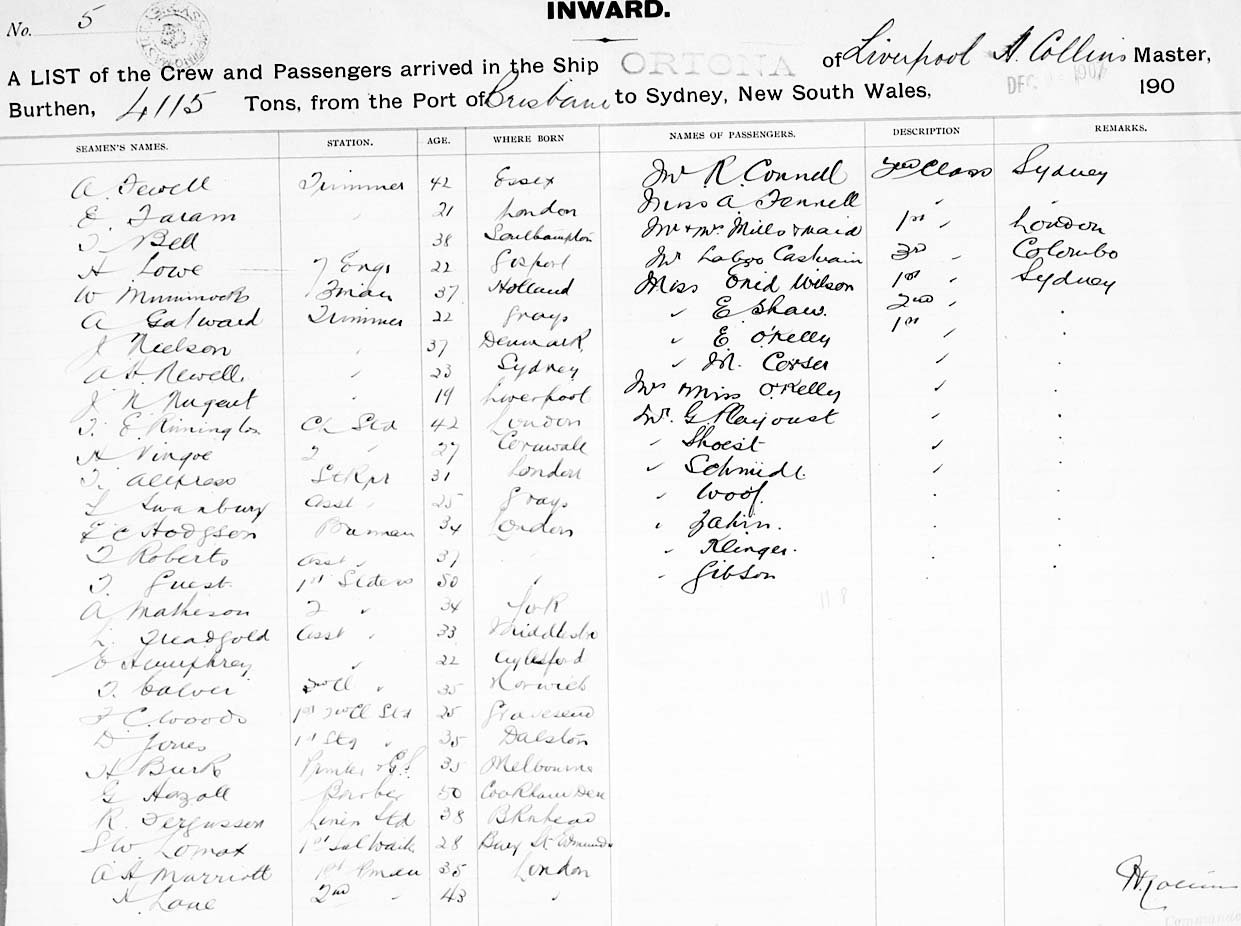 INWARD.
No. 5
A LIST of the Crew and Passengers arrived in the Ship ORTONA of Liverpool A. Collins Master,
Burthen, 4115 Tons, from the Port of Brisbane to Sydney, New South Wales, DEC 190
SEAMEN'S NAMES. STATION. AGE. WHERE BORN NAMES OF PASSENGERS. DESCRIPTION REMARKS.
A. Jewell Trimmer 42 Essex Mr R. Connell 2nd Class Sydney
E. Taram " 21 London Miss A Fennell "
T. Bell 38 Southampton Mr & Mrs Mills & maid 1st " London
A Lowe 7 Engr 22 Gosport Mr 3rd " Colombo
W 37 Holland Miss Enid Wilson 1st " Sydney
A Galward Trimmer 22 Grays " E Shaw. 2nd " "
J. Nielson " 37 Denmark " E O'Kelly 1st " "
A H. Newell " 23 Sydney " M. Corser " "
J N Nugent " 19 Liverpool Mrs & Miss O'Kelly " "
T. E. Rimington Ch Std 42 London Mr. G. Playoust " "
A Vingoe 2 " 27 Cornwall " Shoest " "
T. Allpress St Kpr 31 London " Schmidt " "
L Swanbury Asst " 25 Grays " Woof. " "
F C Hodgson Barman 34 London " Zahin. " "
T Roberts Asst " 37 " " Klinger. " "
T. Guest. 50 " " Gibson " "
A Matheson 2 " 34 York
L. Treadgold Asst " 33 Middlesbo
E Humphrey " 22 Aylesford
T. Calver 2nd Cl " 35 Norwich
F C. Woods 1st 2nd Cl Std 25 Gravesend
D. Jones 1st Stg " 35 Dalston
A Burk Printer & G.S. 35 Melbourne
G Hazell Barber 50 Cookham Dene
R. Fergusson Linen Std 38 B'Kenhead
S W. Lomax 1st Sal Wait 28 Bury St Edmunds
A A Marriott 1st Pman 35 London
A. Lane 2nd " 43 "
A. Collins
Commander